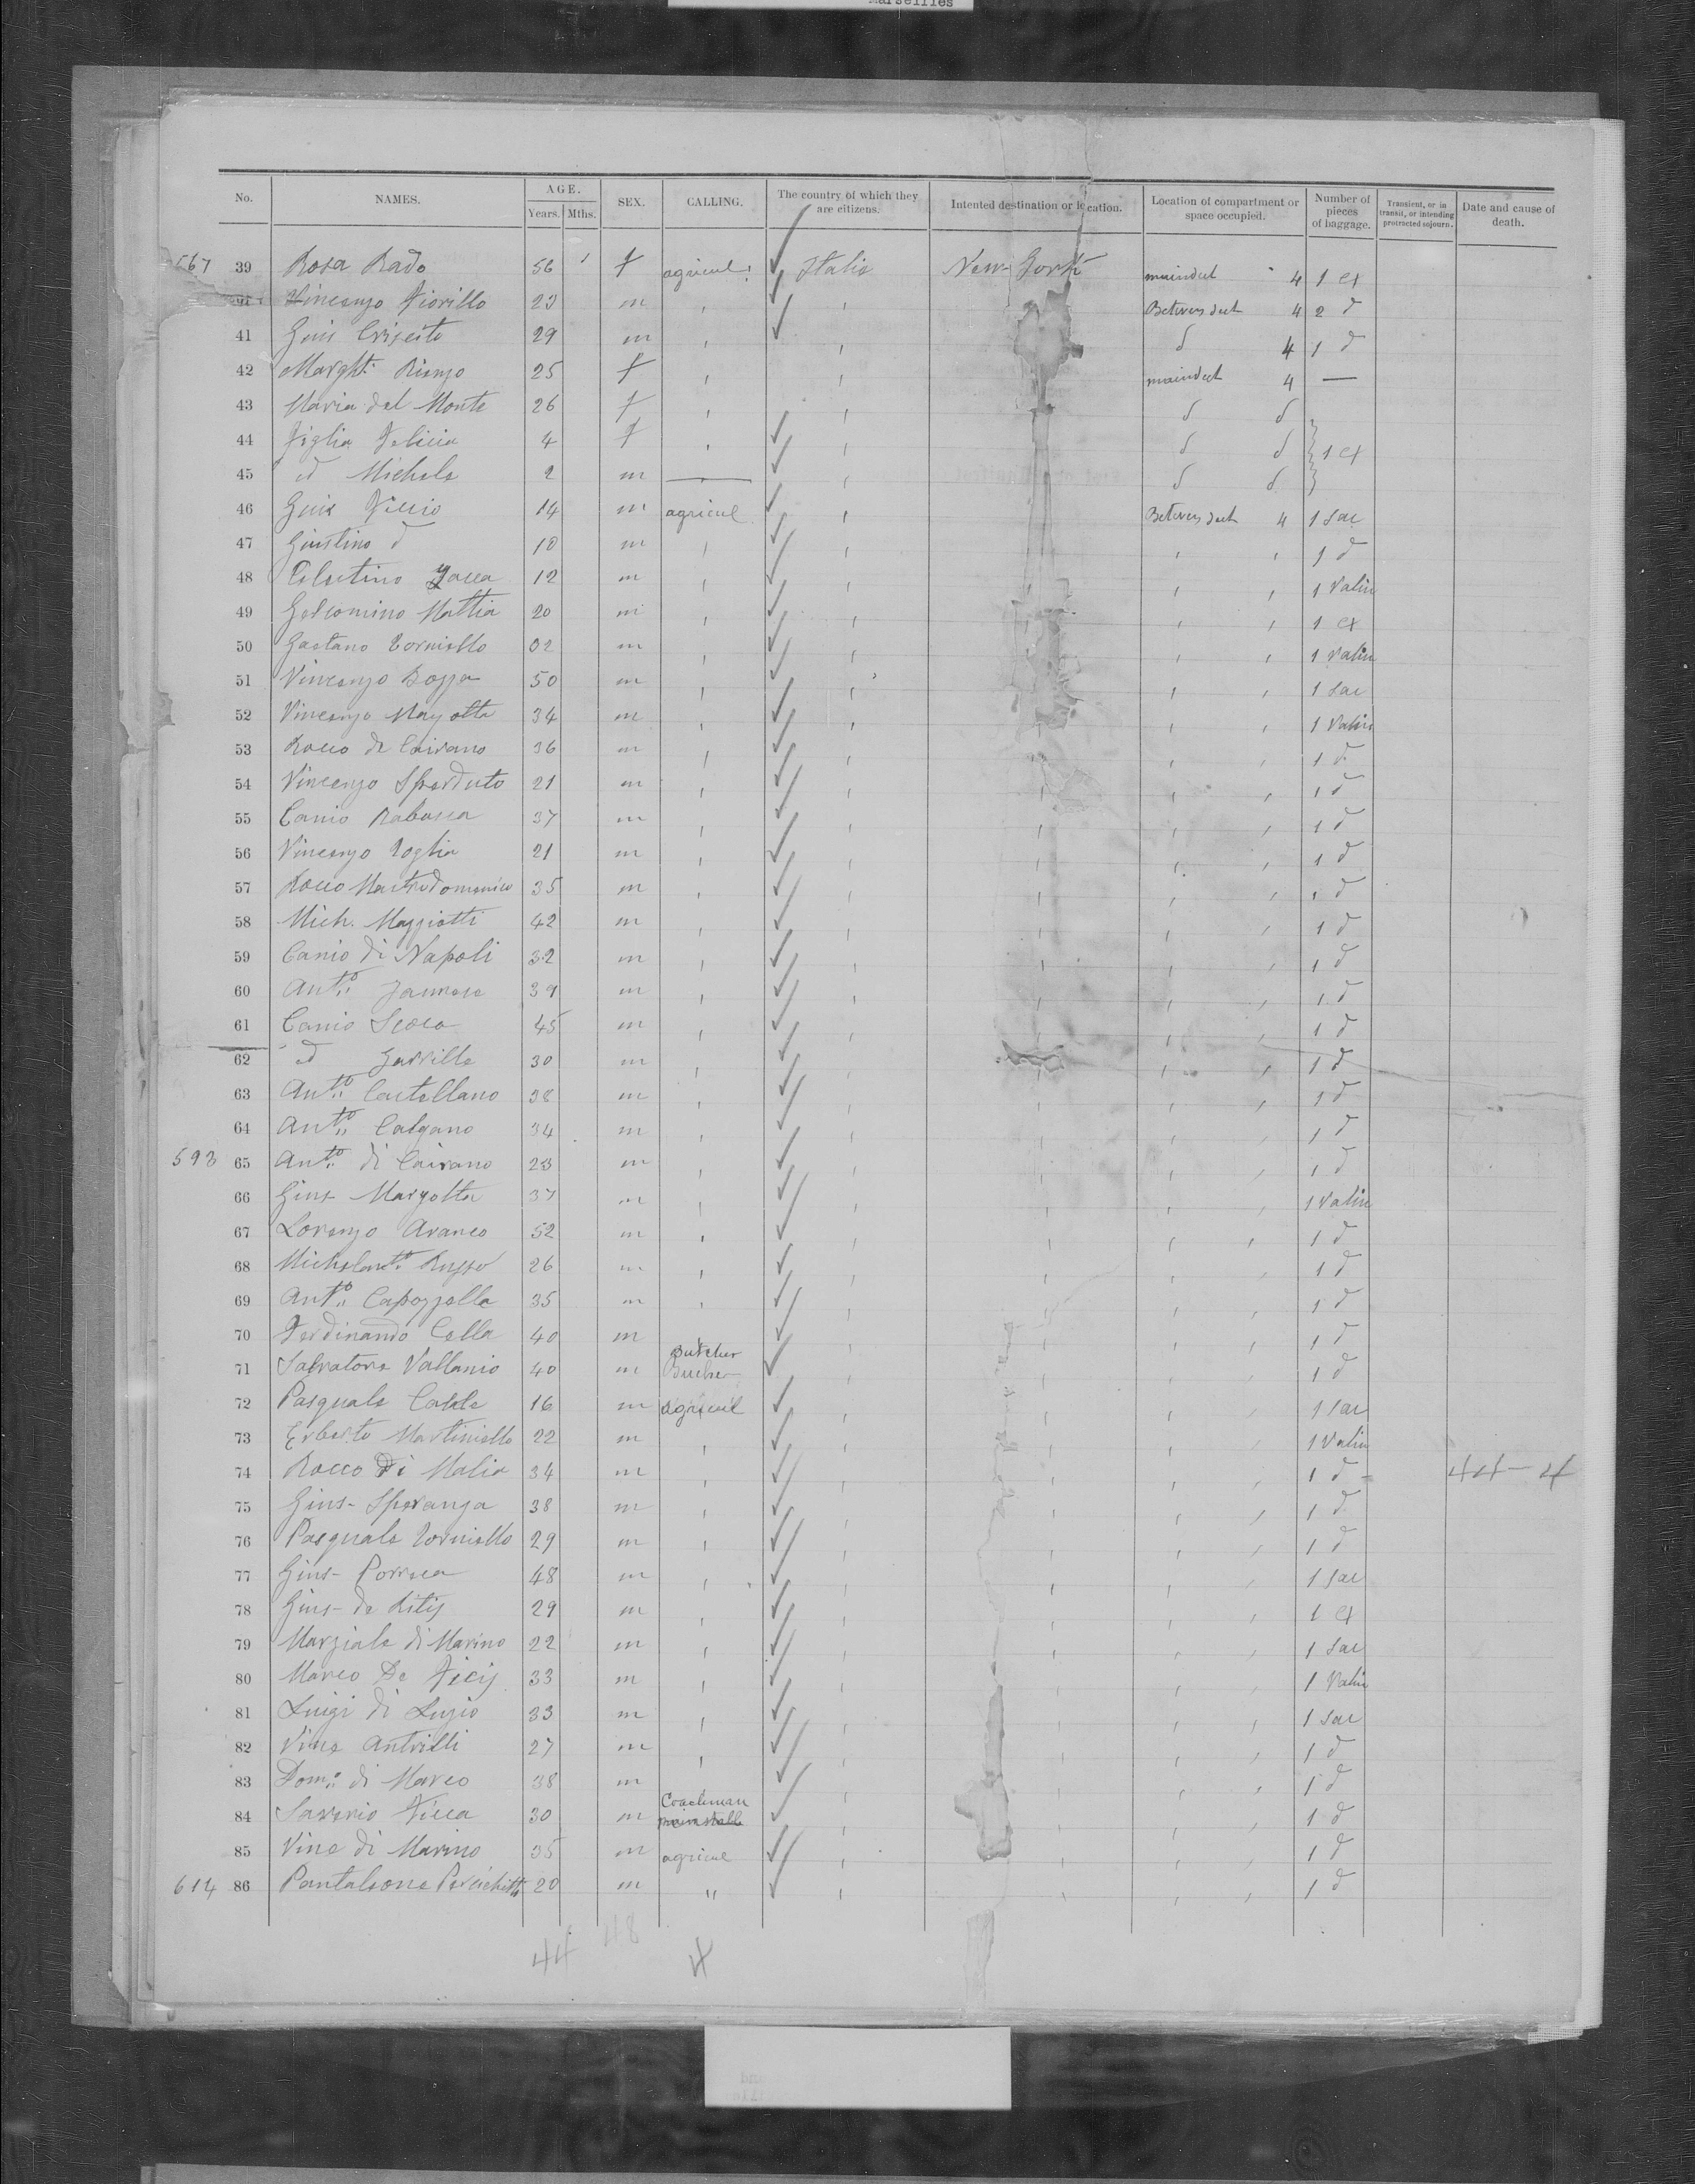 Marseilles
No. NAMES. AGE. Years. Mths. SEX. CALLING. The country of which they are citizens. Intented destination or location. Location of compartment or space occupied. Number of pieces of baggage. Transient, or in transit, or intending protracted sojourn. Date and cause of death.
567 39 Rosa Rado 56 f agricul. Italie New-York maindeck 4 1 ct
Vincenzo Fiorillo 23 m Between deck 4 2 d
41 Gius 29 m d 4 1 d
42 Marght. Rienzo 25 f maindeck 4 —
43 Maria del Monte 26 f d d
44 Figlia Felicia 4 f d d 1 ct
45 d Michele 2 m — d d
46 Gius 14 m agricul Between deck 4 1 sac
47 Giustino d 10 m 1 d
48 Celestino Zacca 12 m 1 Valin
49 Gelsomino Mattia 20 m 1 ct
50 Gaetano Torniello 02 m 1 Valin
51 Vincenzo Bozza 50 m 1 sac
52 Vincenzo 34 m 1 Valin
53 Rocco de Cairano 36 m 1 d
54 Vincenzo Sperduto 21 m 1 d
55 Canio Rabasca 37 m 1 d
56 Vincenzo 21 m 1 d
57 Rocco Mastrodomenico 35 m 1 d
58 Mich. Mazziotti 42 m 1 d
59 Canio di Napoli 32 m 1 d
60 Anto. 39 m 1 d
61 Canio Scoca 45 m 1 d
62 d Zarrilla 30 m 1 d
63 Anto. Castellano 38 m 1 d
64 Anto. Calgano 34 m 1 d
593 65 Anto. di Cairano 23 m 1 d
66 Gius Margotta 37 m 1 Valin
67 Lorenzo Araneo 52 m 1 d
68 Michelanto. Russo 26 m 1 d
69 Anto. Capozzolla 35 m 1 d
70 Ferdinando Cella 40 m 1 d
butcher
71 Salvatore Vallanio 40 m Bucher 1 d
72 Pasquale 16 m agricul 1 sac
73 Erberto Martiniello 22 m 1 Valin
74 Rocco Di Malia 34 m 1 d 44 — 4
75 Gius- Speranza 38 m 1 d
76 Pasquale Torniello 29 m 1 d
77 Gius- Porreca 48 m 1 sac
78 Gius- de Ritis 29 m 1 ct
79 Marziale di Marino 22 m 1 sac
80 Marco De Ficis 33 m 1 Valin
81 Luigi di Luzio 33 m 1 sac
82 Vinc Antrilli 27 m 1 d
83 Domo. di Marco 38 m 1 d
Coachman
84 Saverio Ficca 30 m 1 d
85 Vinc di Marino 35 m agricul 1 d
614 86 Pantaleone 20 m " 1 d
44 48 4